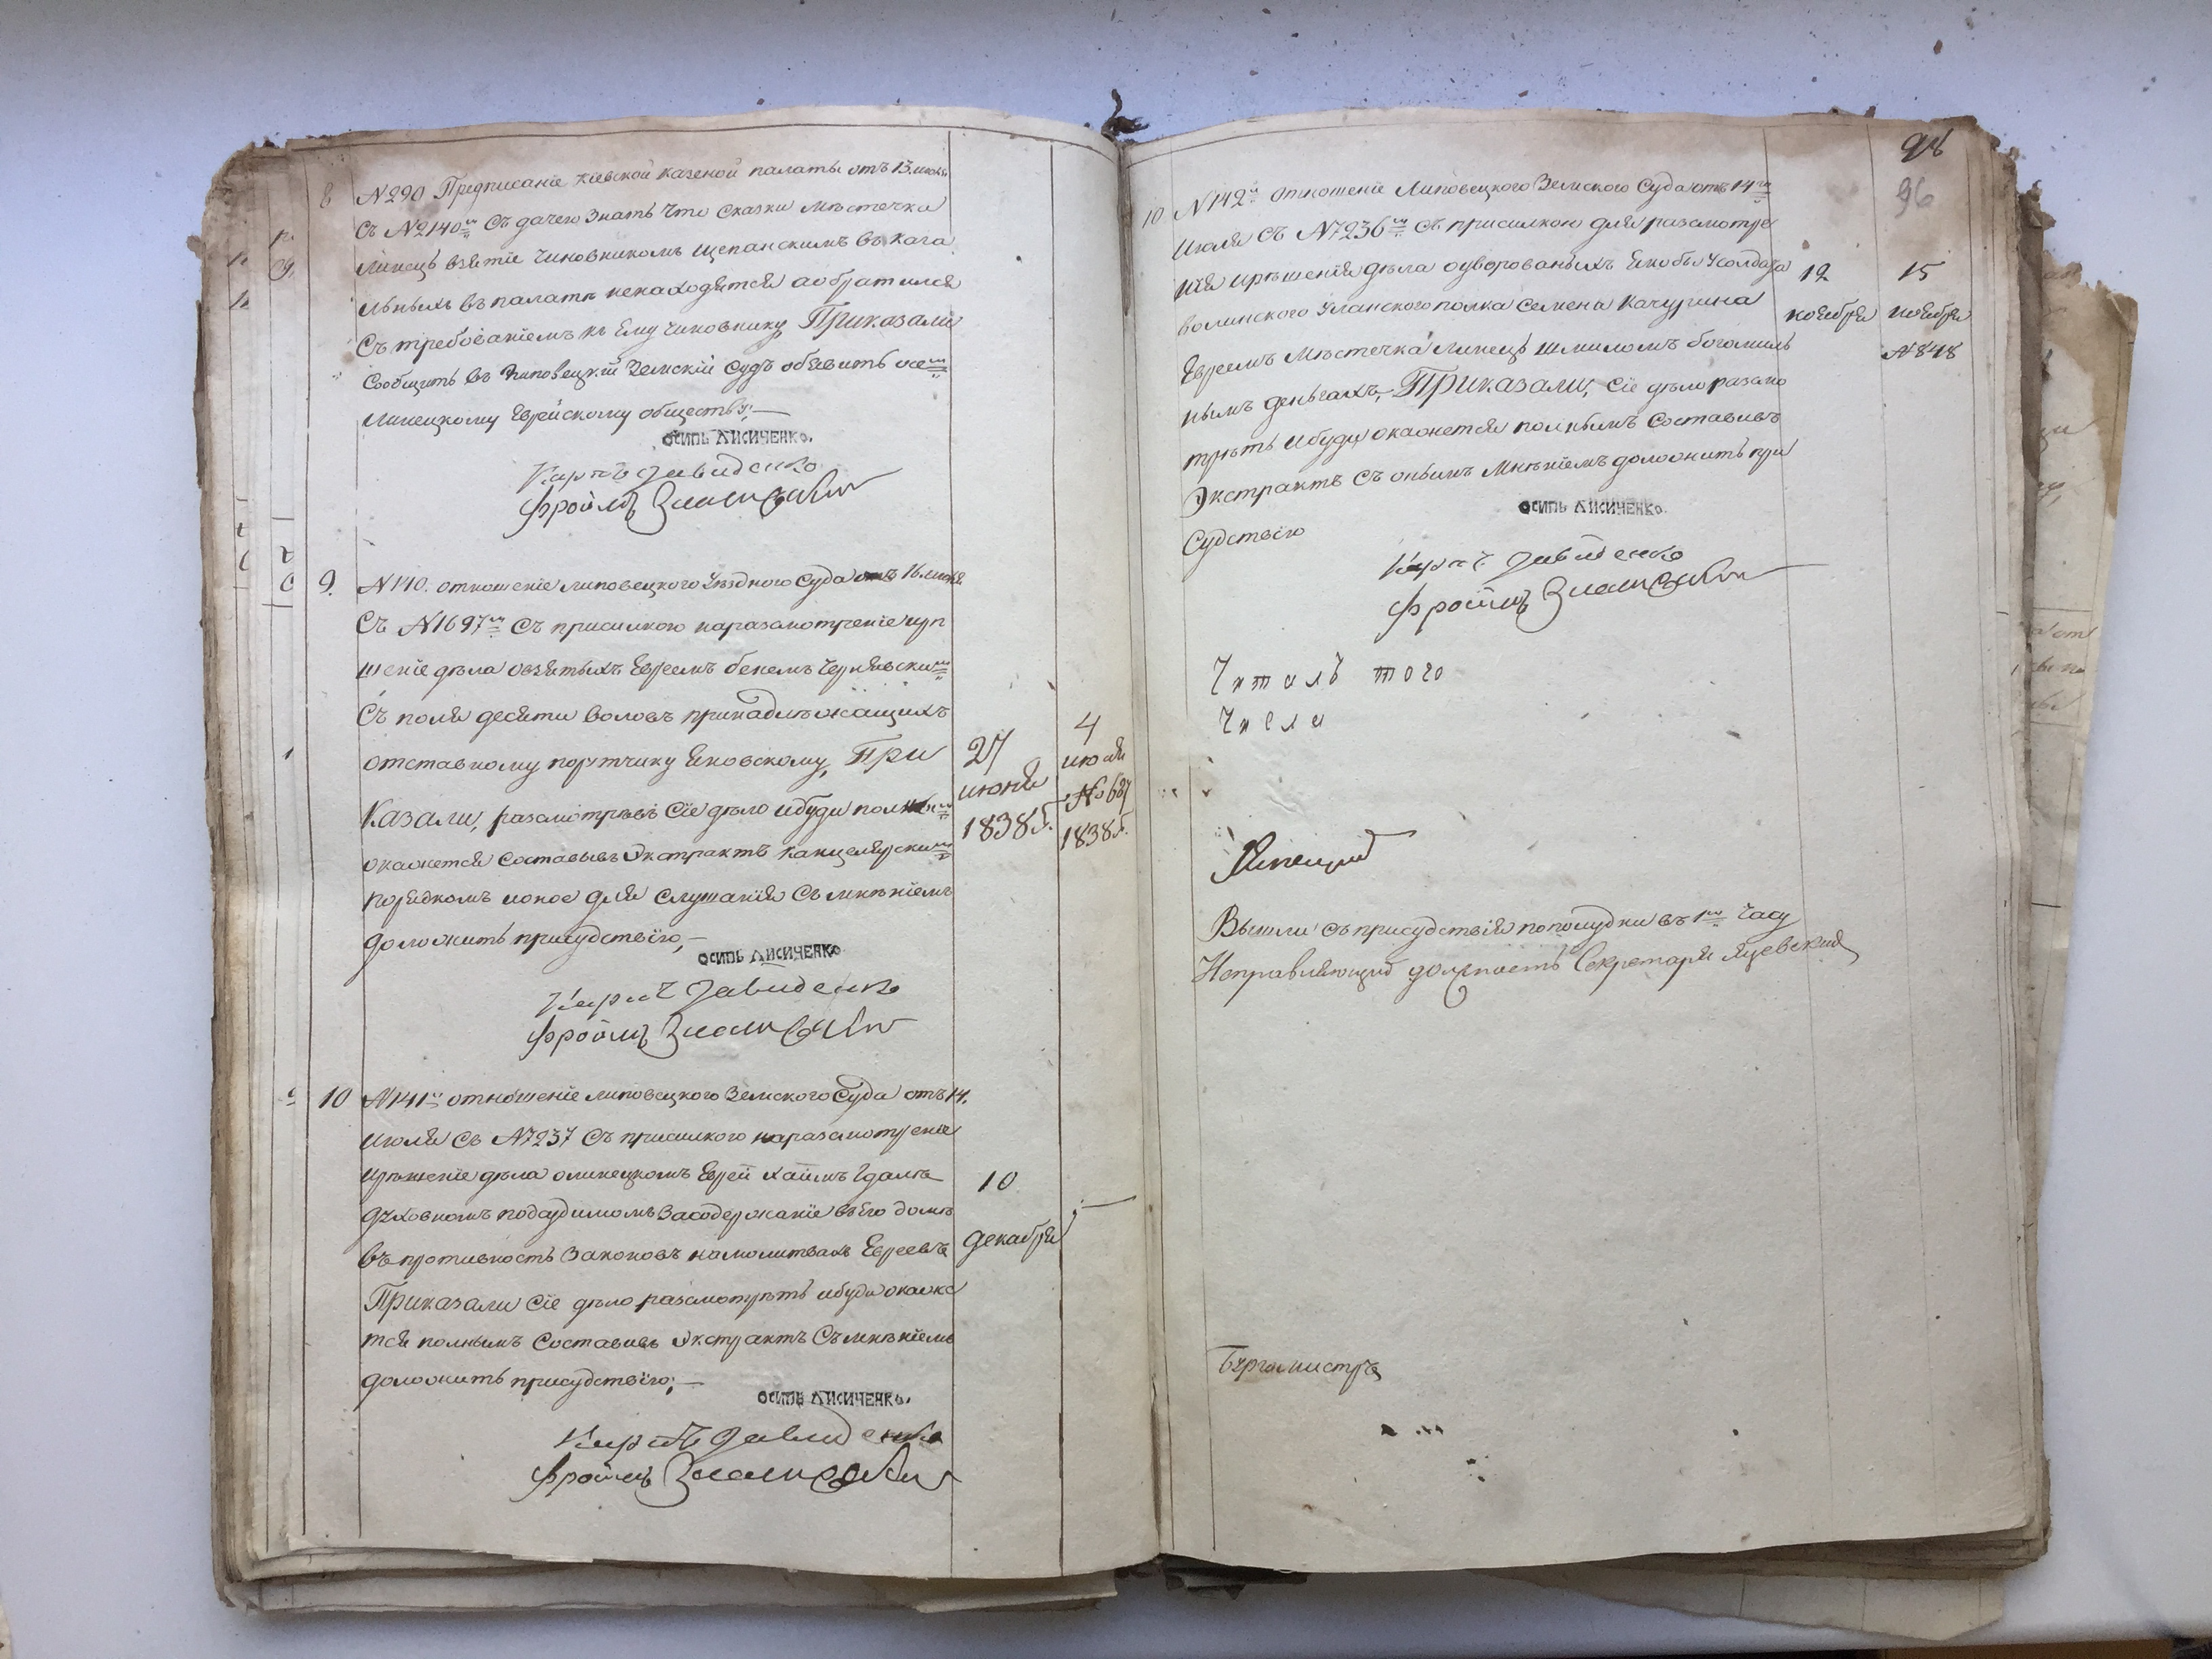 8 №290 Предписаніе Кіевской казеной палаты отъ 13. июня
Съ №2140мъ Съ дачею знать что сказки Мѣстечка
Линецъ взятіе чиновникомъ Щепанскимъ въ кага
льныхъ въ палатѣ ненаходятся а обратился
Съ требованіемъ къ ему чиновнику, Приказали
Сообщить въ Липовецкій Земскій Судъ объявить осемъ
Линецкому Еврейскому обществу;—
ОСИПЬ ЛИСИЧЕНКО.
Карпъ Давиденко
Фроймъ
9. №140. отношеніе липовецкого Уѣздного Суда отъ 16. июня
Съ №1697мъ Съ присилкою наразсмотреніе ирѣ
шеніе дѣла овзятыхъ Евреемъ бенемъ Чернявскимъ
Съ поля десяти воловъ принадлѣжащихъ
отставному порутчику Яновскому, При
казали, разсмотрѣвъ Сіе дѣло ибуди полнымъ
окажется составывъ Экстрактъ канцелярскимъ
порядкомъ ионое для слушанія Съ мнѣніемъ
доложить присудствію,—
27
июня
1838 г.
4
июля
№ 687
1838 г.
ОСИПЬ ЛИСИЧЕНКО
Карпъ Давиденко
Фроймъ
10 №141й отношеніе липовецкого Земского Суда отъ 14.
Июля Съ №7237 Съ присилкого наразсмотреніе
ирѣшеніе дѣла олинецкомъ Еврей Хаимъ Гдалѣ
духовномъ подсудимомъ Засодержаніе въ Его домѣ
въ противность Законовъ намолитвахъ Евреевъ
Приказали Сіе дѣло разсмотрѣть ибуди окаже
тся полнымъ Составивъ Экстрактъ Съ мнѣніемъ
доложить присудствію;—
10
декабря
ОСИПЬ ЛИСИЧЕНКО.
Карпъ Давиденко
Фроймъ
96
10 №142й отношеніе Липовецкого Земского Суда отъ 14го
Июля Съ №7236мъ Съ присилкою для разсмотре
нія ирѣшенія дѣла оуворованыхъ якобы Усолдата
волинского Уланского полка Семена Качурина
Евреемъ Мѣстечка Линецъ Шмиломъ боголиль
нымъ деньгахъ,— Приказали, Сіе дѣло разсмо
трѣть ибуди окажется полнымъ Составивъ
Экстрактъ Съ онымъ Мнѣніемъ доложить при
Судствію
12
ноября
15
ноября
№848
ОСИПЬ ЛИСИЧЕНКО.
Карпъ Давиденко
Фроймъ
Читалъ того
Числа
Вышли съ присудствія пополудни въ 1мъ часу
Исправляющій должность Секретаря Яцевскій
Бургомистръ